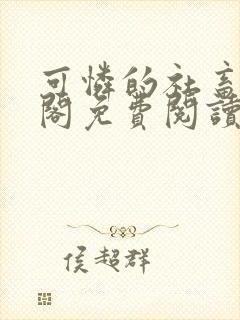 可憐的社畜
閣免費閱讀
侯超群